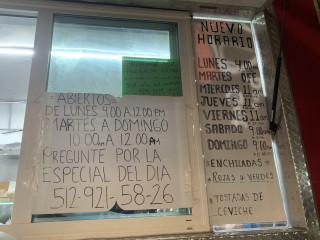 ABIERTOS
DE LUNES 9:00 A 12:00 PM
MARTES A DOMINGO
10:00 A 12:00 AM
PREGUNTE POR LA
ESPECIAL DEL DIA
512-921-58-26
NUEVO
HORARIO
LUNES 9:00
MARTES OFF
MIERCOLES 11
JUEVES 11
VIERNES 11
SABADO 9:00
DOMINGO 9:00
ENCHILADAS
ROJAS Y VERDES
TOSTADAS DE
CEVICHE